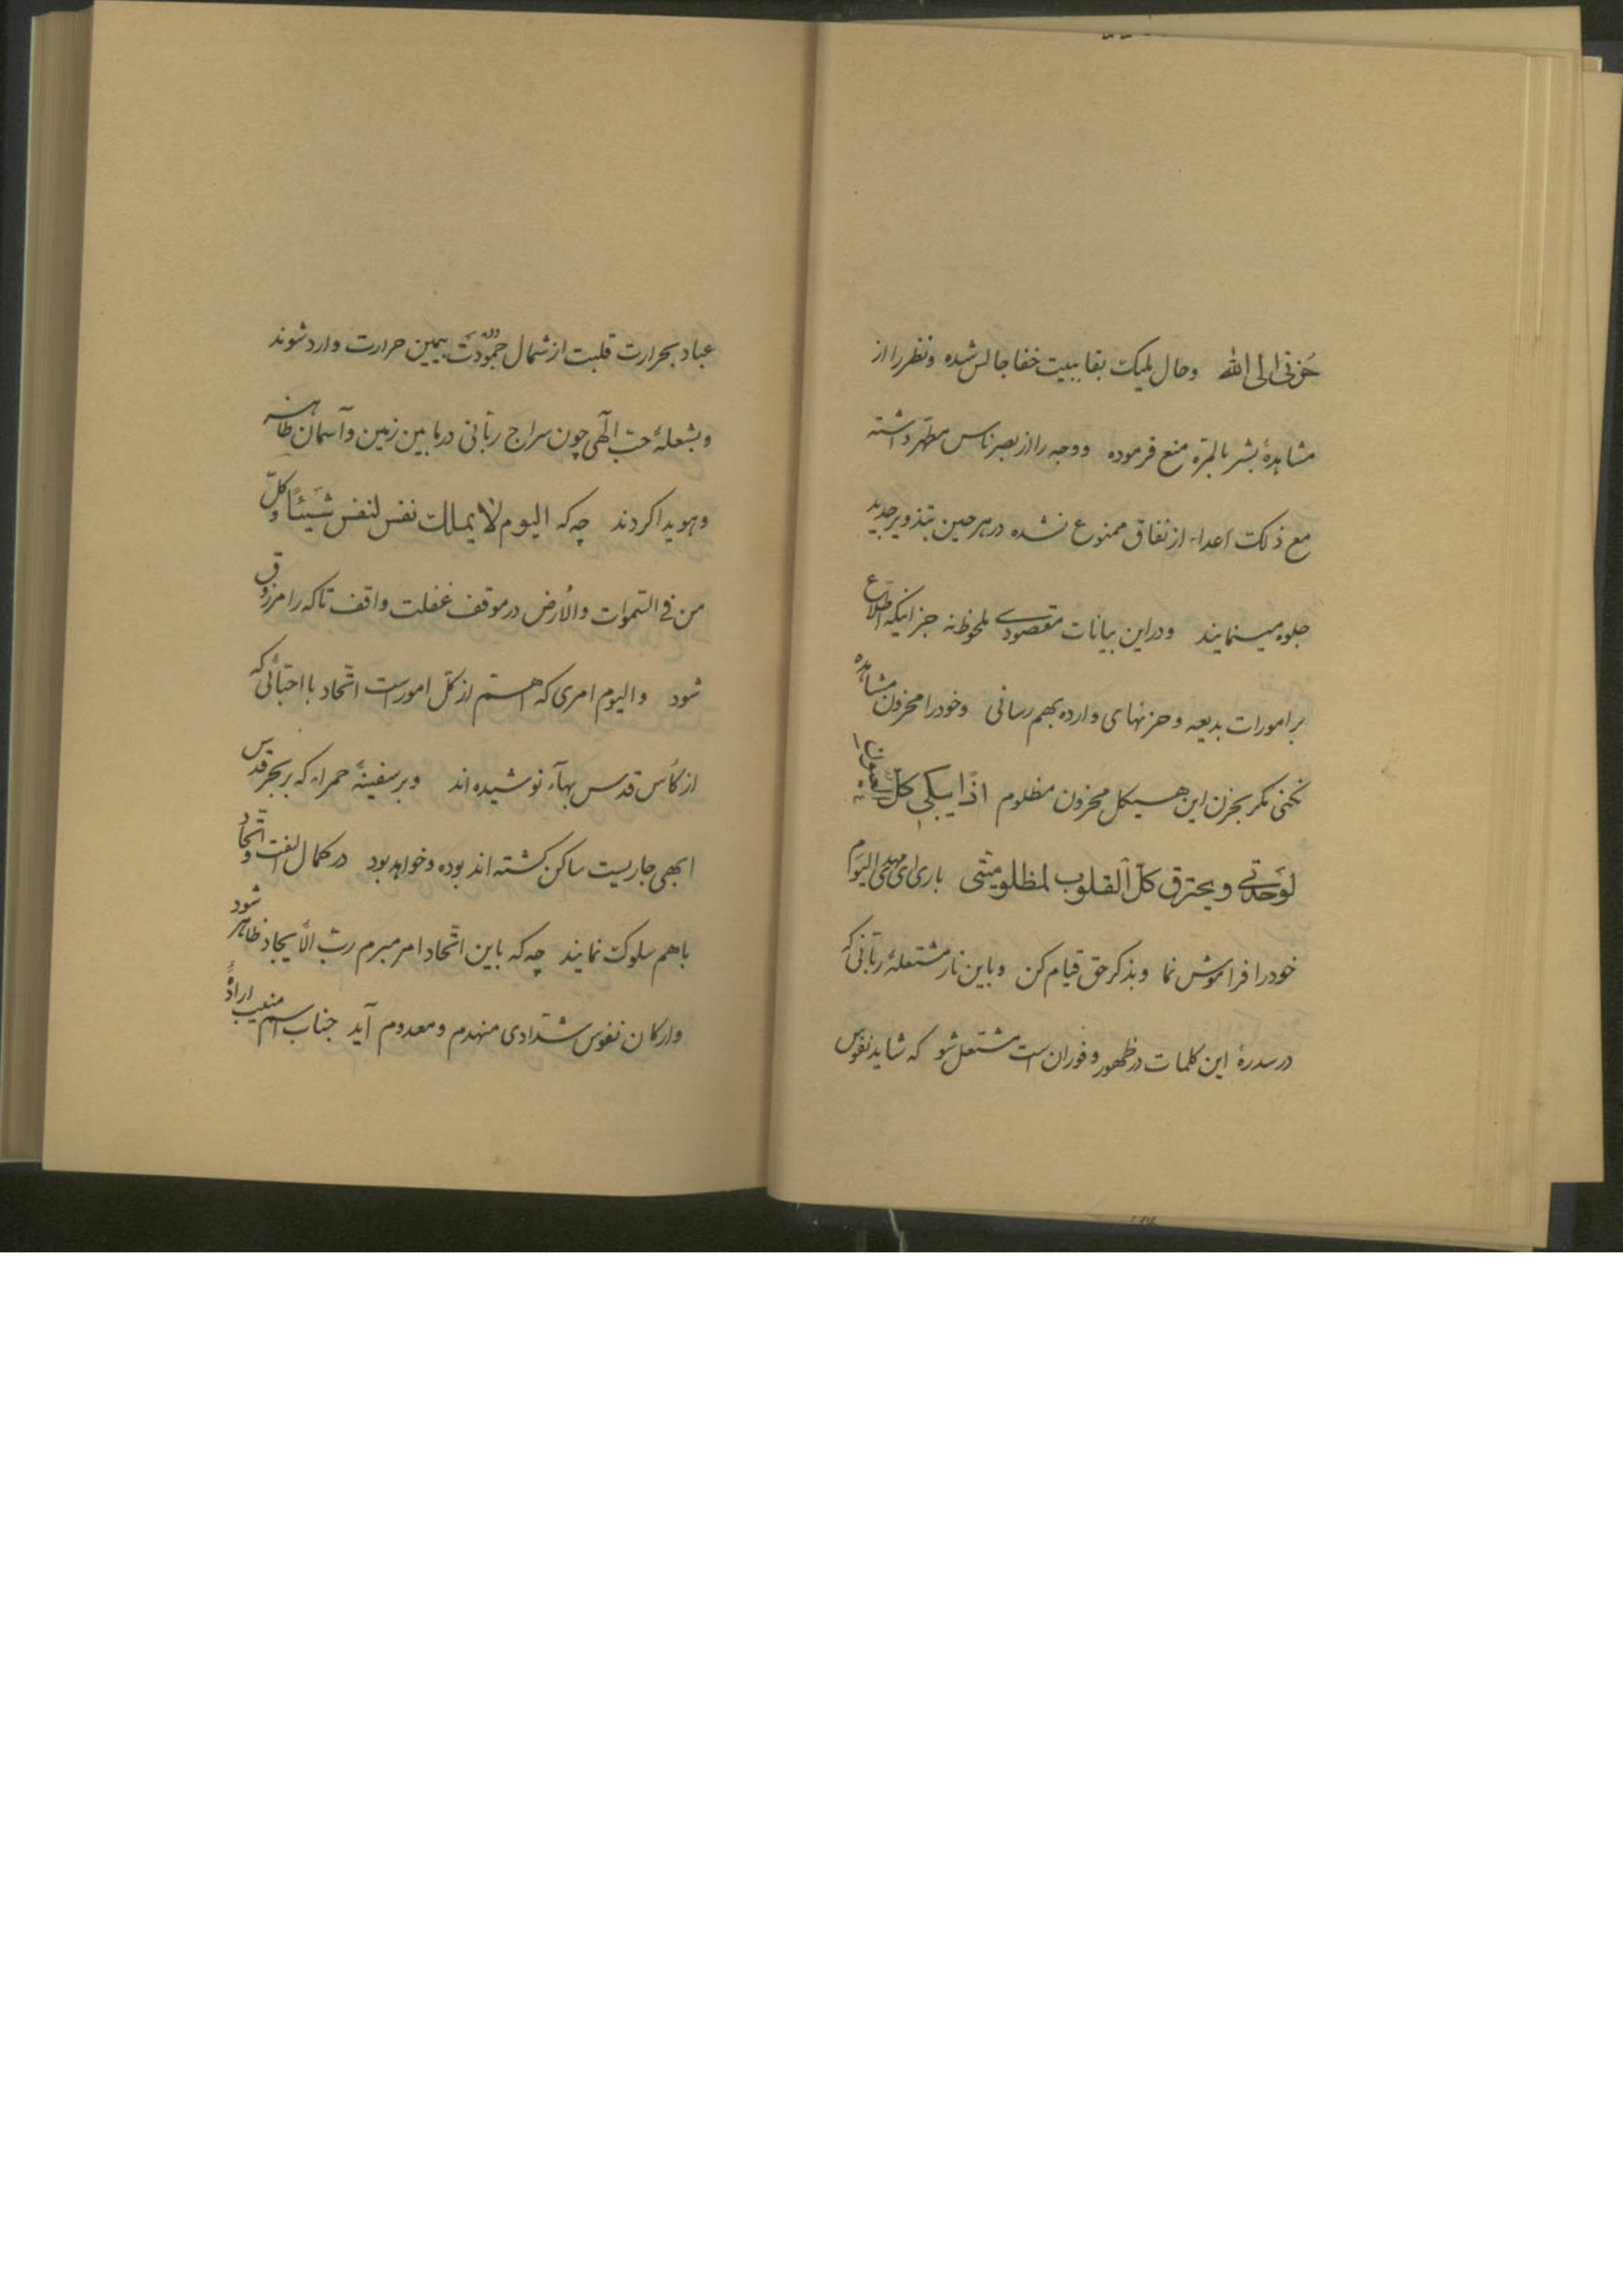 حُزنی الی الله و حال ملیک بقا ببیت خفا جالس شده و نظر را از
مشاهدهٔ بشر بالمرّه منع فرموده و وجه را از بصر ناس مطهّر داشته
مع ذلک اعداء از نفاق ممنوع نشده در هر حین بتذویر جدید
جلوه مینمایند و در این بیانات مقصودی ملحوظ نه جز اینکه اطّلاع
بر امورات بدیعه و حزنهای وارده بهم رسانی و خود را محزون مشاهده
نکنی مگر بحزن این هیکل محزون مظلوم اذًا یبکی کلّ العیون
لوَحدتی و یحترق کلّ القلوب لمظلومیّتی باری ای مهدی الیَوم
خود را فراموش نما و بذکر حق قیام کن و باین نار مشتعلهٔ ربّانی که
در سدرهٔ این کلمات در ظهور و فوران است مشتعل شو که شاید نفوس
عباد بحرارت قلبت از شمال جمودت بیمین حرارت وارد شوند
و بشعلهٔ حبّ الٓهی چون سراج ربّانی در مابین زمین و آسمان ظاهر
و هویدا گردند چه که الیوم لا یملک نفس لنفس شَیئًا و کلّ
من فی السّموات و الأرض در موقف غفلت واقف تا که را مرزوق
شود و الیوم امری که اهمّ از کلّ امور است اتّحاد با احبّائی که
از کأس قدس بهآء نوشیده اند و بر سفینهٔ حمراء که بر بحر قدس
ابهی جاریست ساکن گشته اند بوده و خواهد بود در کمال الفت و اتّحاد
با هم سلوک نمایند چه که باین اتّحاد امر مبرم ربّ الأیجاد ظاهر شود
و ارکان نفوس شدّادی منهدم و معدوم آید جناب اسم منیب ارادهٔ